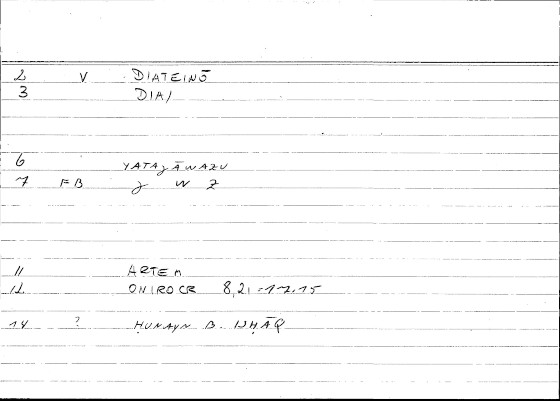 2 V DIATEINŌ
3 DIA/
6 YATAJĀWAZU
7 FB J W Z
11 ARTEM
12 ONIROCR 8,21 = 17.15
14 ? ḤUNAYN B. ISḤĀQ